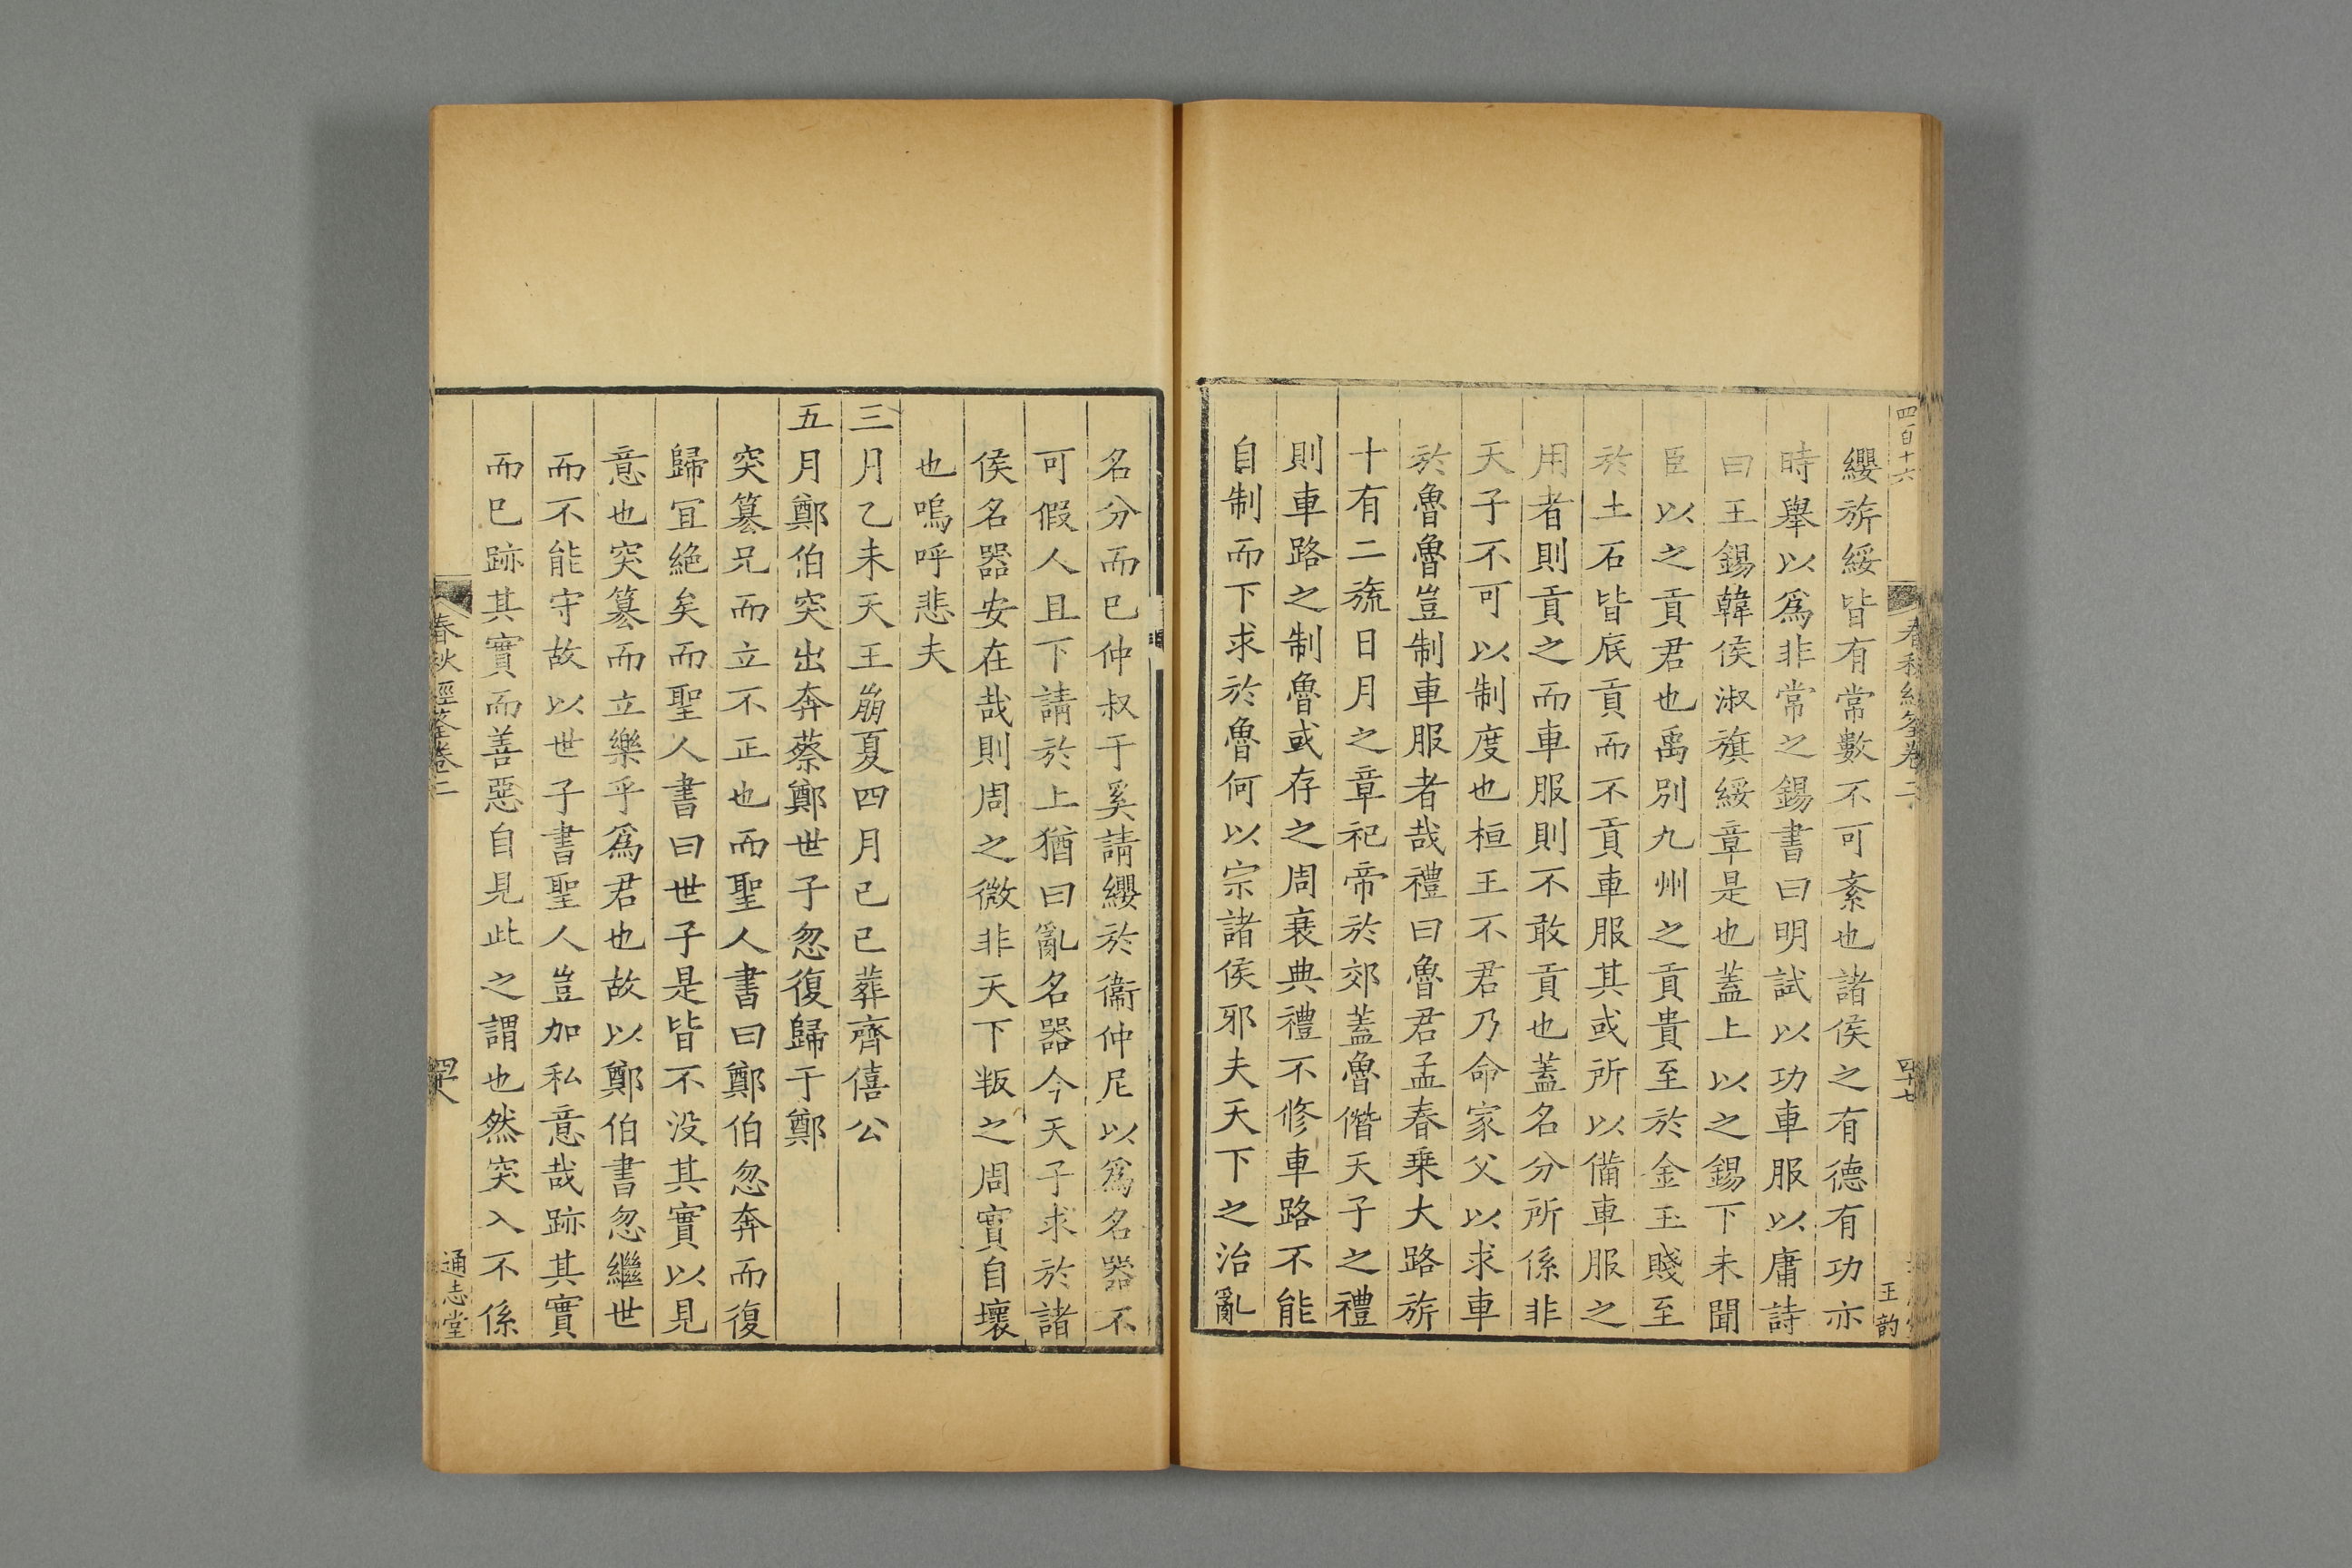 四百十六
春秋經筌卷二
四十七
王韵
纓斾綏皆有常數不可紊也諸侯之有德有功亦
時舉以爲非常之錫書曰明試以功車服以庸詩
曰王錫韓侯淑旗綏章是也蓋上以之錫下未聞
臣以之貢君也禹別九州之貢貴至於金玉賤至
於土石皆底貢而不貢車服其或所以備車服之
用者則貢之而車服則不敢貢也蓋名分所係非
天子不可以制度也桓王不君乃命家父以求車
於魯魯豈制車服者哉禮曰魯君孟春乗大路斾
十有二旒日月之章祀帝於郊蓋魯僭天子之禮
則車路之制魯或存之周衰典禮不修車路不能
自制而下求於魯何以宗諸侯邪夫天下之治亂
名分而已仲叔于奚請纓於衞仲尼以爲名器不
可假人且下請於上猶曰亂名器今天子求於諸
侯名器安在哉則周之微非天下叛之周實自壞
也嗚呼悲夫
三月乙未天王崩夏四月己巳葬齊僖公
五月鄭伯突出奔蔡鄭世子忽復歸于鄭
突簒兄而立不正也而聖人書曰鄭伯忽奔而復
歸宜絶矣而聖人書曰世子是皆不没其實以見
意也突簒而立樂乎爲君也故以鄭伯書忽繼世
而不能守故以世子書聖人豈加私意哉跡其實
而已跡其實而善惡自見此之謂也然突入不係
春秋經筌卷二
四十八
通志堂